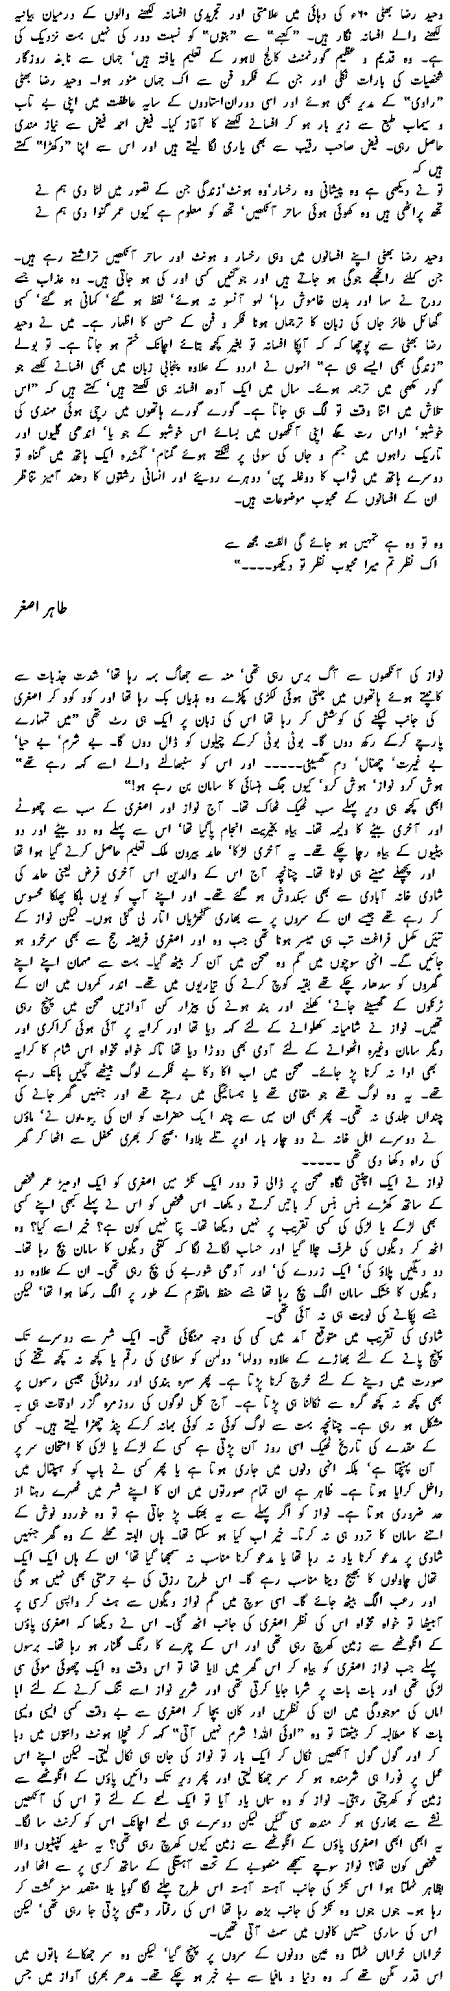 وحید رضا بھٹی ۶۰ء کی دہائی میں علامتی اور تجریدی افسانہ لکھنے والوں کے درمیان بیانیہ
لکھنے والے افسانہ نگار ہیں۔ "کعبے" سے "بتوں" کو نسبت دور کی نہیں بہت نزدیک کی
ہے۔ وہ قدیم و عظیم گورنمنٹ کالج لاہور کے تعلیم یافتہ ہیں' جہاں سے نابغہ روزگار
شخصیات کی بارات نکلی اور جن کے فکرو فن سے اک جہاں منور ہوا۔ وحید رضا بھٹی
"راوی" کے مدیر بھی ہوئے اور اسی دوران استادوں کے سایہ عاطفت میں اپنی بے تاب
و سیماب طبع سے زیر بار ہو کر افسانے لکھنے کا آغاز کیا۔ فیض احمد فیض سے نیاز مندی
حاصل رہی۔ فیض صاحب رقیب سے بھی یاری لگا لیتے ہیں اور اس سے اپنا "دکھڑا" کہتے
ہیں کہ
تو نے دیکھی ہے وہ پیشانی وہ رخسار' وہ ہونٹ' زندگی جن کے تصور میں لٹا دی ہم نے
تجھ پر اٹھی ہیں وہ کھوئی ہوئی ساحر آنکھیں' تجھ کو معلوم ہے کیوں عمر گنوا دی ہم نے
وحید رضا بھٹی اپنے افسانوں میں وہی رخسار و ہونٹ اور ساحر آنکھیں تراشتے رہے ہیں۔
جن کیلئے رانجھے جوگی ہو جاتے ہیں اور جوگنیں کسی اور کی ہو جاتی ہیں۔ وہ عذاب جسے
روح نے سہا اور بدن خاموش رہا' لہو آنسو نہ ہوئے' لفظ ہو گئے' کہانی ہو گئے' کسی
گھائل طائر جاں کی زبان کا ترجماں ہونا فکر و فن کے حسن کا اظہار ہے۔ میں نے وحید
رضا بھٹی سے پوچھا کہ کہ آپکا افسانہ تو بغیر کچھ بتائے اچانک ختم ہو جاتا ہے۔ تو بولے
"زندگی بھی ایسے ہی ہے" انہوں نے اردو کے علاوہ پنجابی زبان میں بھی افسانے لکھے جو
گور مکھی میں ترجمہ ہوئے۔ سال میں ایک آدھ افسانہ ہی لکھتے ہیں' کہتے ہیں کہ "اس
تلاش میں اتنا وقت تو لگ ہی جاتا ہے۔ گورے گورے ہاتھوں میں رچی ہوئی مہندی کی
خوشبو' اداس رت جگے اپنی آنکھوں میں بسائے اس خوشبو کے جو یا' اندھی گلیوں اور
تاریک راہوں میں جسم و جاں کی سولی پر لٹکتے ہوئے گمنام' گمشدہ ایک ہاتھ میں گناہ تو
دوسرے ہاتھ میں ثواب کا دوغلہ پن' دوہرے رویئے اور انسانی رشتوں کا دھند آمیز تناظر
ان کے افسانوں کے محبوب موضوعات ہیں۔
وہ تو وہ ہے تمہیں ہو جائے گی الفت مجھ سے
اک نظر تم میرا محبوب نظر تو دیکھو۔۔۔۔"
طاہر اصغر
نواز کی آنکھوں سے آگ برس رہی تھی' منہ سے جھاگ بہہ رہا تھا' شدت جذبات سے
کانپتے ہوئے ہاتھوں میں جلتی ہوئی لکڑی پکڑے وہ ہذیاں بک رہا تھا اور کود کود کر اصغری
کی جانب لپکنے کی کوشش کر رہا تھا اس کی زبان پر ایک ہی رٹ تھی "میں تمہارے
پارچے کرکے رکھ دوں گا۔ بوٹی بوٹی کرکے چیلوں کو ڈال دوں گا۔ بے شرم' بے حیا'
بے غیرت' چھنال' دم گھسیٹی۔۔۔۔۔ اور اس کو سنبھالنے والے اسے کہہ رہے تھے"
ہوش کرو نواز' ہوش کرو' کیوں جگ ہنسائی کا سامان بن رہے ہو!"
ابھی کچھ ہی دیر پہلے سب ٹھیک ٹھاک تھا۔ آج نواز اور اصغری کے سب سے چھوٹے
اور آخری بیٹے کا ولیمہ تھا۔ بیاہ بخیریت انجام پا گیا تھا' اس سے پہلے وہ دو بیٹے اور دو
بیٹیوں کے بیاہ رچا چکے تھے۔ یہ آخری لڑکا' حامد بیرون ملک تعلیم حاصل کرنے گیا ہوا تھا
اور پچھلے مہینے ہی لوٹا تھا۔ چنانچہ آج اس کے والدین اس آخری فرض یعنی حامد کی
شادی خانہ آبادی سے بھی سبکدوش ہو گئے تھے۔ اور اپنے آپ کو یوں ہلکا پھلکا محسوس
کر رہے تھے جیسے ان کے سروں پر سے بھاری گٹھڑیاں اتار لی گئی ہوں۔ لیکن نواز کے
تئیں مکمل فراغت تب ہی میسر ہونا تھی جب وہ اور اصغری فریضہ حج سے بھی سرخرو ہو
جائیں گے۔ انہی سوچوں میں گم وہ صحن میں آن کر بیٹھ گیا۔ بہت سے مہمان اپنے اپنے
گھروں کو سدھار چکے تھے بقیہ کوچ کرنے کی تیاریوں میں تھے۔ اندر کمروں میں ان کے
ٹرنکوں کے گھسیٹے جانے' کھلنے اور بند ہونے کی بیزار کن آوازیں صحن میں پہنچ رہی
تھیں۔ نواز نے شامیانہ کھلوانے کے لئے کہہ دیا تھا اور کرایہ پر آئی ہوئی کراکری اور
دیگر سامان وغیرہ اٹھوانے کے لئے آدمی بھی دوڑا دیا تھا تاکہ خواہ مخواہ اس شام کا کرایہ
بھی ادا نہ کرنا پڑ جائے۔ صحن میں اب اکا دکا بے فکرے لوگ بیٹھے گپیں ہانک رہے
تھے۔ یہ وہ لوگ تھے جو مقامی تھے یا ہمسائیگی میں رہتے تھے اور جنہیں گھر جانے کی
چنداں جلدی نہ تھی۔ پھر بھی ان میں سے چند ایک حضرات کو ان کی بیویوں نے' ماؤں
نے دوسرے اہل خانہ نے دو چار بار اوپر تلے بلاوا بھیج کر بھری محفل سے اٹھا کر گھر
کی راہ دکھا دی تھی ۔۔۔۔۔
نواز نے ایک اچٹتی نگاہ صحن پر ڈالی تو دور ایک نکڑ میں اصغری کو ایک ادھیڑ عمر شخص
کے ساتھ کھڑے ہنس ہنس کر باتیں کرتے دیکھا۔ اس شخص کو اس نے پہلے کبھی اپنے کسی
بھی لڑکے یا لڑکی کی کسی تقریب پر نہیں دیکھا تھا۔ پتا نہیں کون ہے؟ خیر اسے کیا؟ وہ
اٹھ کر دیگوں کی طرف چلا گیا اور حساب لگانے لگا کہ کتنی دیگوں کا سامان بچ رہا تھا۔
دو دیگیں پلاؤ کی' ایک زردے کی' اور آدھی شوربے کی بچ رہی تھی۔ ان کے علاوہ دو
دیگوں کا خشک سامان الگ بچ رہا تھا جسے حفظ ماتقدم کے طور پر الگ رکھا ہوا تھا' لیکن
جسے پکانے کی نوبت ہی نہ آئی تھی۔
شادی کی تقریب میں متوقع آمد میں کمی کی وجہ مہنگائی تھی۔ ایک شہر سے دوسرے تک
پہنچ پانے کے لئے بھاڑے کے علاوہ دولہا' دولہن کو سلامی کی رقم یا کچھ نہ کچھ تحفے کی
صورت میں دینے کے لئے خرچ کرنا پڑتا ہے۔ پھر سہرہ بندی اور رونمائی جیسی رسموں پر
بھی کچھ نہ کچھ گرہ سے نکالنا ہی پڑتا ہے۔ آج کل لوگوں کی روزمرہ گزر اوقات ہی یہ
مشکل ہو رہی ہے۔ چنانچہ بہت سے لوگ کوئی نہ کوئی بہانہ کرکے پنڈ چھڑا لیتے ہیں۔ کسی
کے مقدمے کی تاریخ ٹھیک اسی روز آن پڑتی ہے کسی کے لڑکے یا لڑکی کا امتحان سر پر
آن پہنچتا ہے' بلکہ انہی دنوں میں جاری ہوتا ہے یا پھر کسی نے باپ کو ہسپتال میں
داخل کرایا ہوتا ہے۔ ظاہر ہے ان تمام صورتوں میں ان کا اپنے شہر میں ٹھہرے رہنا از
حد ضروری ہوتا ہے۔ نواز کو اگر پہلے سے یہ بھنک پڑ جاتی ہے تو وہ خوردو نوش کے
اتنے سامان کا تردد ہی نہ کرتا۔ خیر اب کیا ہو سکتا تھا۔ ہاں البتہ محلے کے وہ گھر جنہیں
شادی پر مدعو کرنا یاد نہ رہا تھا یا مدعو کرنا مناسب نہ سمجھا گیا تھا' ان کے ہاں ایک ایک
تھال چاولوں کا بھیج دینا مناسب رہے گا۔ اس طرح رزق کی بے حرمتی بھی نہیں ہو گی
اور رعب الگ بیٹھ جائے گا۔ اسی سوچ میں گم نواز دیگوں سے ہٹ کر واپس کرسی پر
آبیٹھا تو خواہ مخواہ اس کی نظر اصغری کی جانب اٹھ گئی۔ اس نے دیکھا کہ اصغری پاؤں
کے انگوٹھے سے زمین کھرچ رہی تھی اور اس کے چہرے کا رنگ گلنار ہو رہا تھا۔ برسوں
پہلے جب نواز اصغری کو بیاہ کر اس گھر میں لایا تھا تو اس وقت وہ ایک چھوئی موئی سی
لڑکی تھی اور بات بات پر شرما جایا کرتی تھی اور شریر نواز اسے تنگ کرنے کے لئے ابا
اماں کی موجودگی میں ان کی نظریں اور کان بچا کر اصغری سے بے وقت کسی ایسی ویسی
بات کا مطالبہ کر بیٹھتا تو وہ "اوئی اللہ! شرم نہیں آتی" کہہ کر نچلا ہونٹ دانتوں میں دبا
کر اور گول گول آنکھیں نکال کر ایک بار تو نواز کی جان ہی نکال لیتی۔ لیکن اپنے اس
عمل پر فورا ہی شرمندہ ہو کر سر جھکا لیتی اور پھر دیر تک دائیں پاؤں کے انگوٹھے سے
زمین کو کھرچتی رہتی۔ نواز کو وہ سماں یاد آیا تو ایک لمحے کے لئے تو اس کی آنکھیں
نشے سے بھاری ہو کر مندھ سی گئیں لیکن دوسرے ہی لمحے اچانک اس کو کرنٹ سا لگا۔
یہ ابھی ابھی اصغری پاؤں کے انگوٹھے سے زمین کیوں کھرچ رہی تھی؟ یہ سفید کنپٹیوں والا
شخص کون تھا؟ نواز سوچے سمجھے منصوبے کے تحت آہستگی کے ساتھ کرسی پر سے اٹھا اور
بظاہر ٹہلتا ہوا اس نکڑ کی جانب آہستہ آہستہ اس طرح چلنے لگا گویا بلا مقصد مٹر گشت کر
رہا ہو۔ جوں جوں وہ نکڑ کی جانب بڑھ رہا تھا اس کی رفتار دھیمی پڑتی جا رہی تھی' لیکن
اس کی ساری حسیں کانوں میں سمٹ آتی تھیں۔
خراماں خراماں ٹہلتا وہ عین دونوں کے سروں پر پہنچ گیا' لیکن وہ سر جھکائے باتوں میں
اس قدر مگن تھے کہ وہ دنیا و مافیا سے بے خبر ہو چکے تھے۔ مدھر بھری آواز میں جس